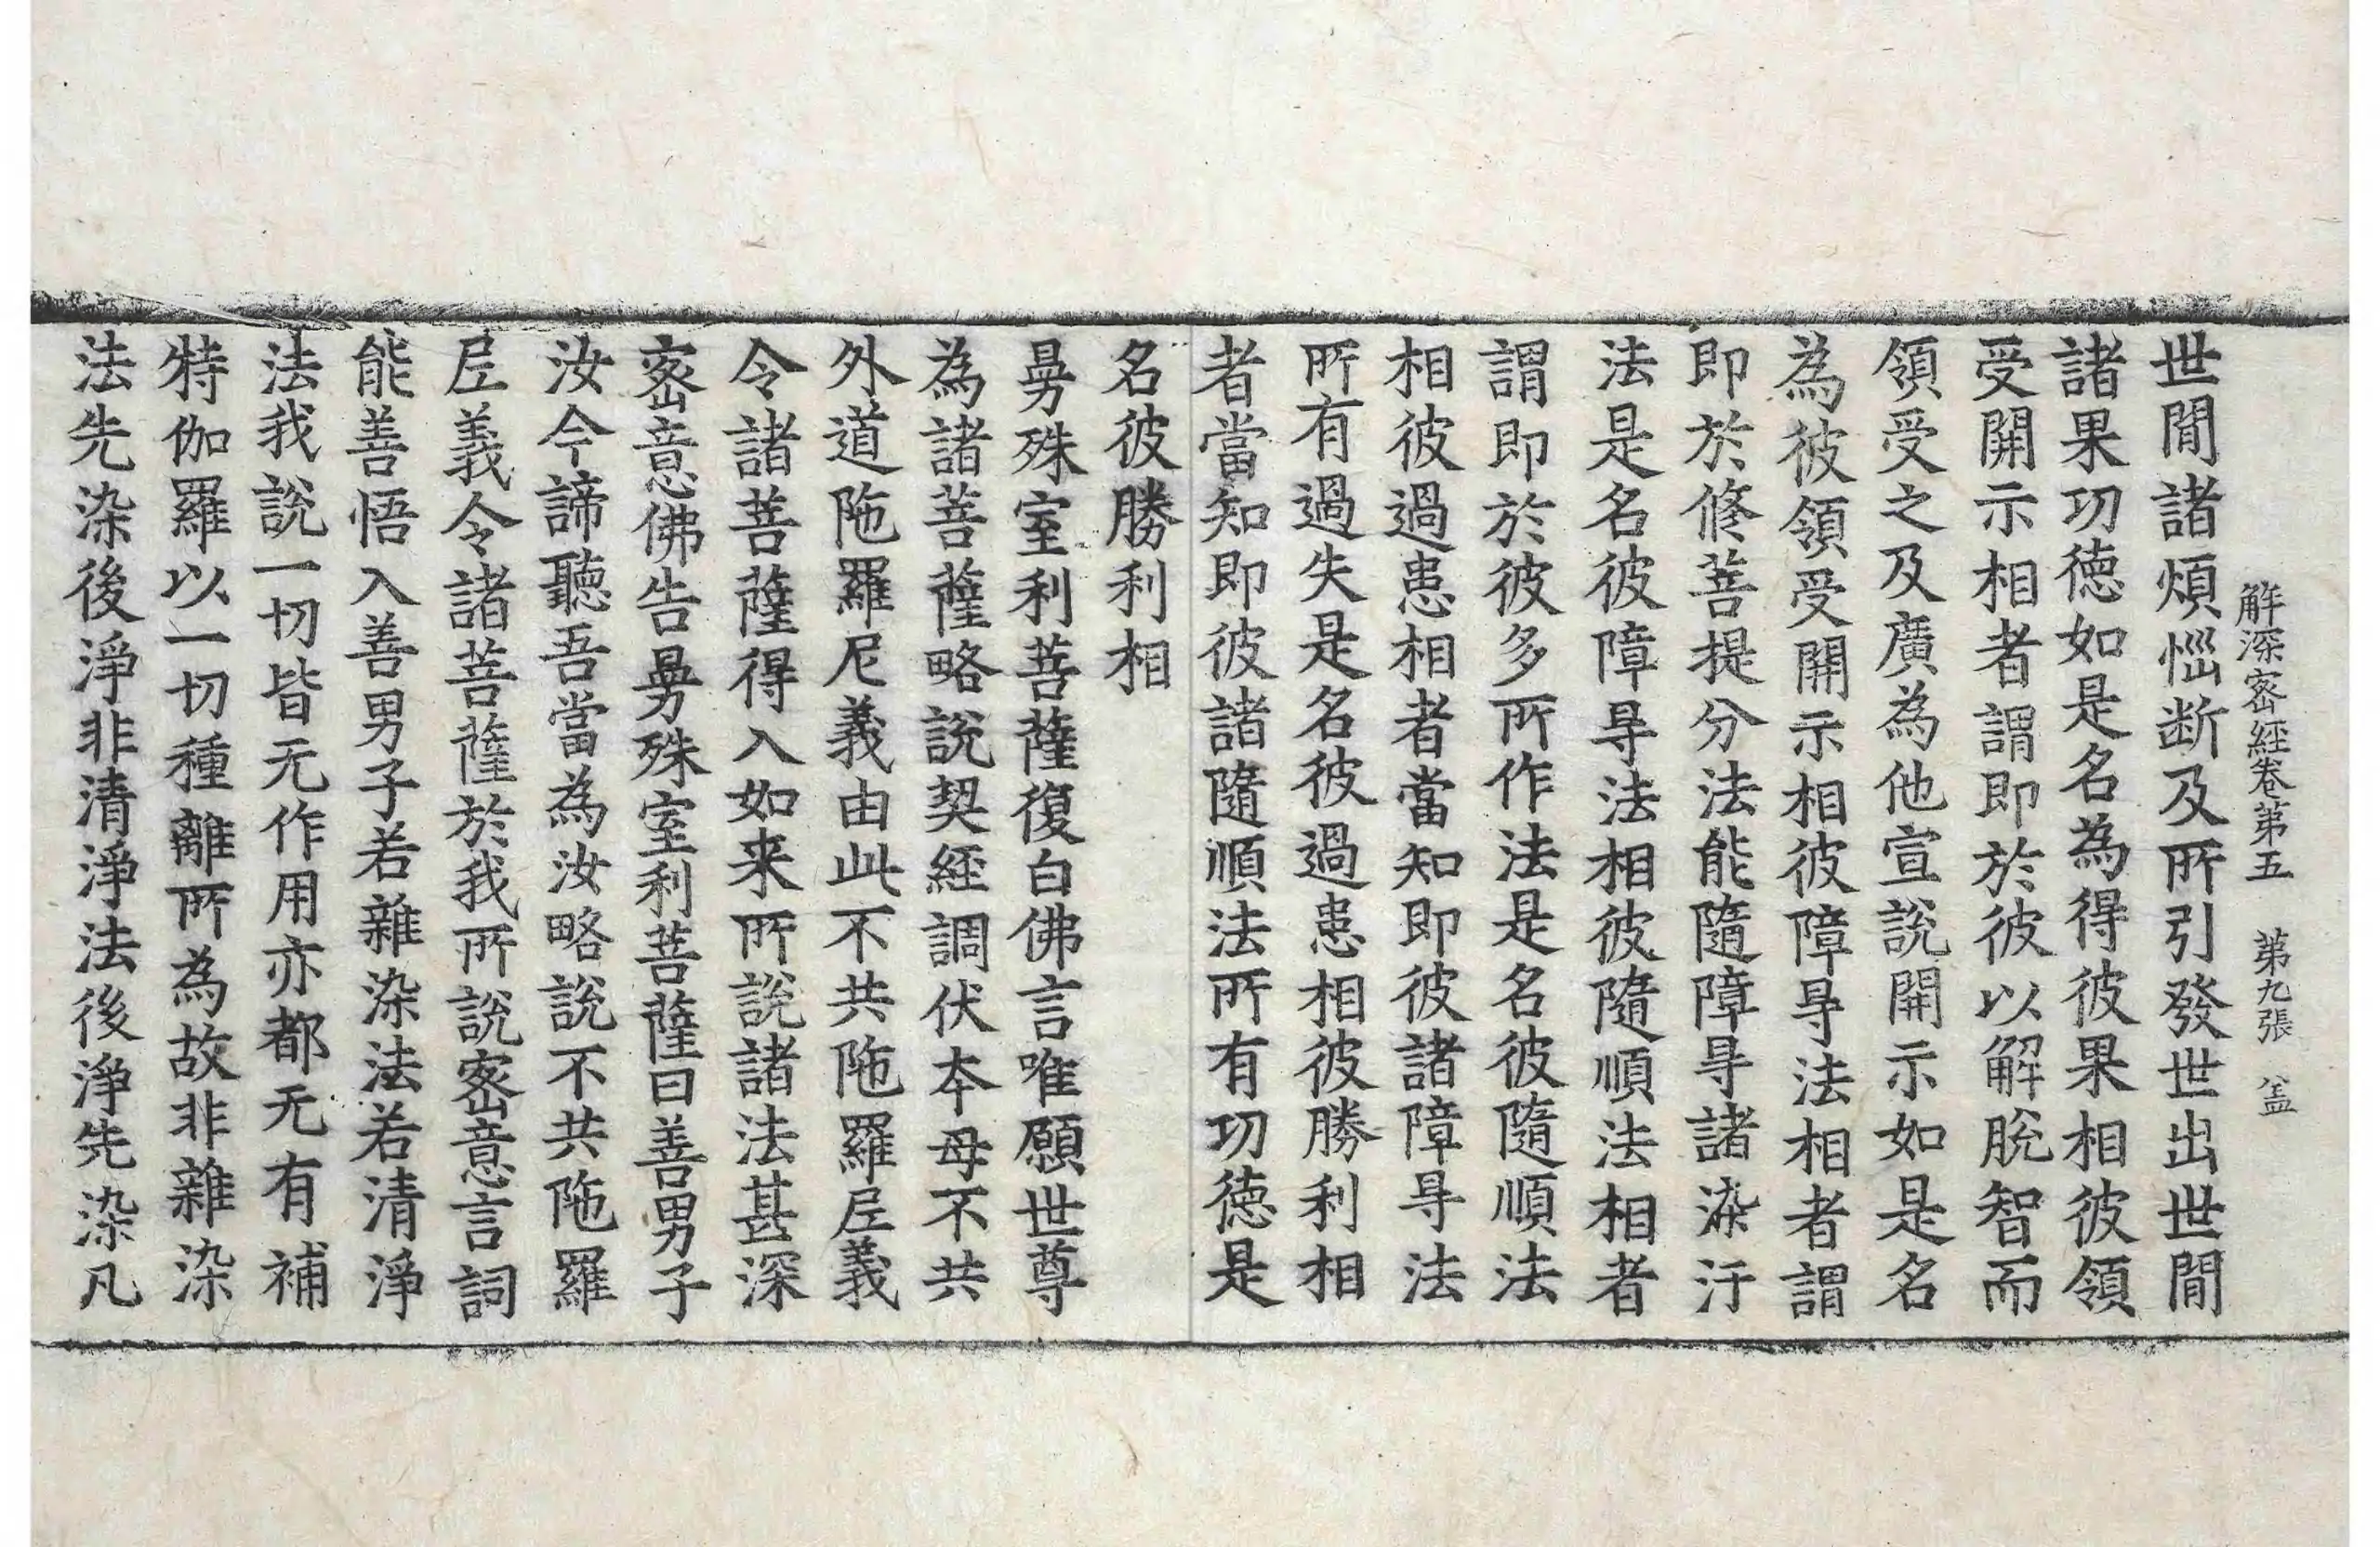 解深密經卷第五　第九張　盖
世閒諸煩惱断及所引發世出世閒
諸果功徳如是名為得彼果相彼領
受開示相者謂即於彼以解脫智而
領受之及廣為他宣說開示如是名
為彼領受開示相彼障㝵法相者謂
即於修菩提分法能隨障㝵諸染汙
法是名彼障㝵法相彼隨順法相者
謂即於彼多所作法是名彼隨順法
相彼過患相者當知即彼諸障㝵法
所有過失是名彼過患相彼勝利相
者當知即彼諸隨順法所有功徳是
名彼勝利相
曼殊室利菩薩復白佛言唯願世尊
為諸菩薩略說契經調伏夲母不共
外道陁羅尼義由此不共陁羅尼義
令諸菩薩得入如来所說諸法甚深
密意佛告曼殊室利菩薩曰善男子
汝今諦聽吾當為汝略說不共陁羅
尼義令諸菩薩於我所說密意言詞
能善悟入善男子若雜染法若清淨
法我說一切皆无作用亦都无有補
特伽羅以一切種離所為故非雜染
法先染後淨非清淨法後淨先染凡